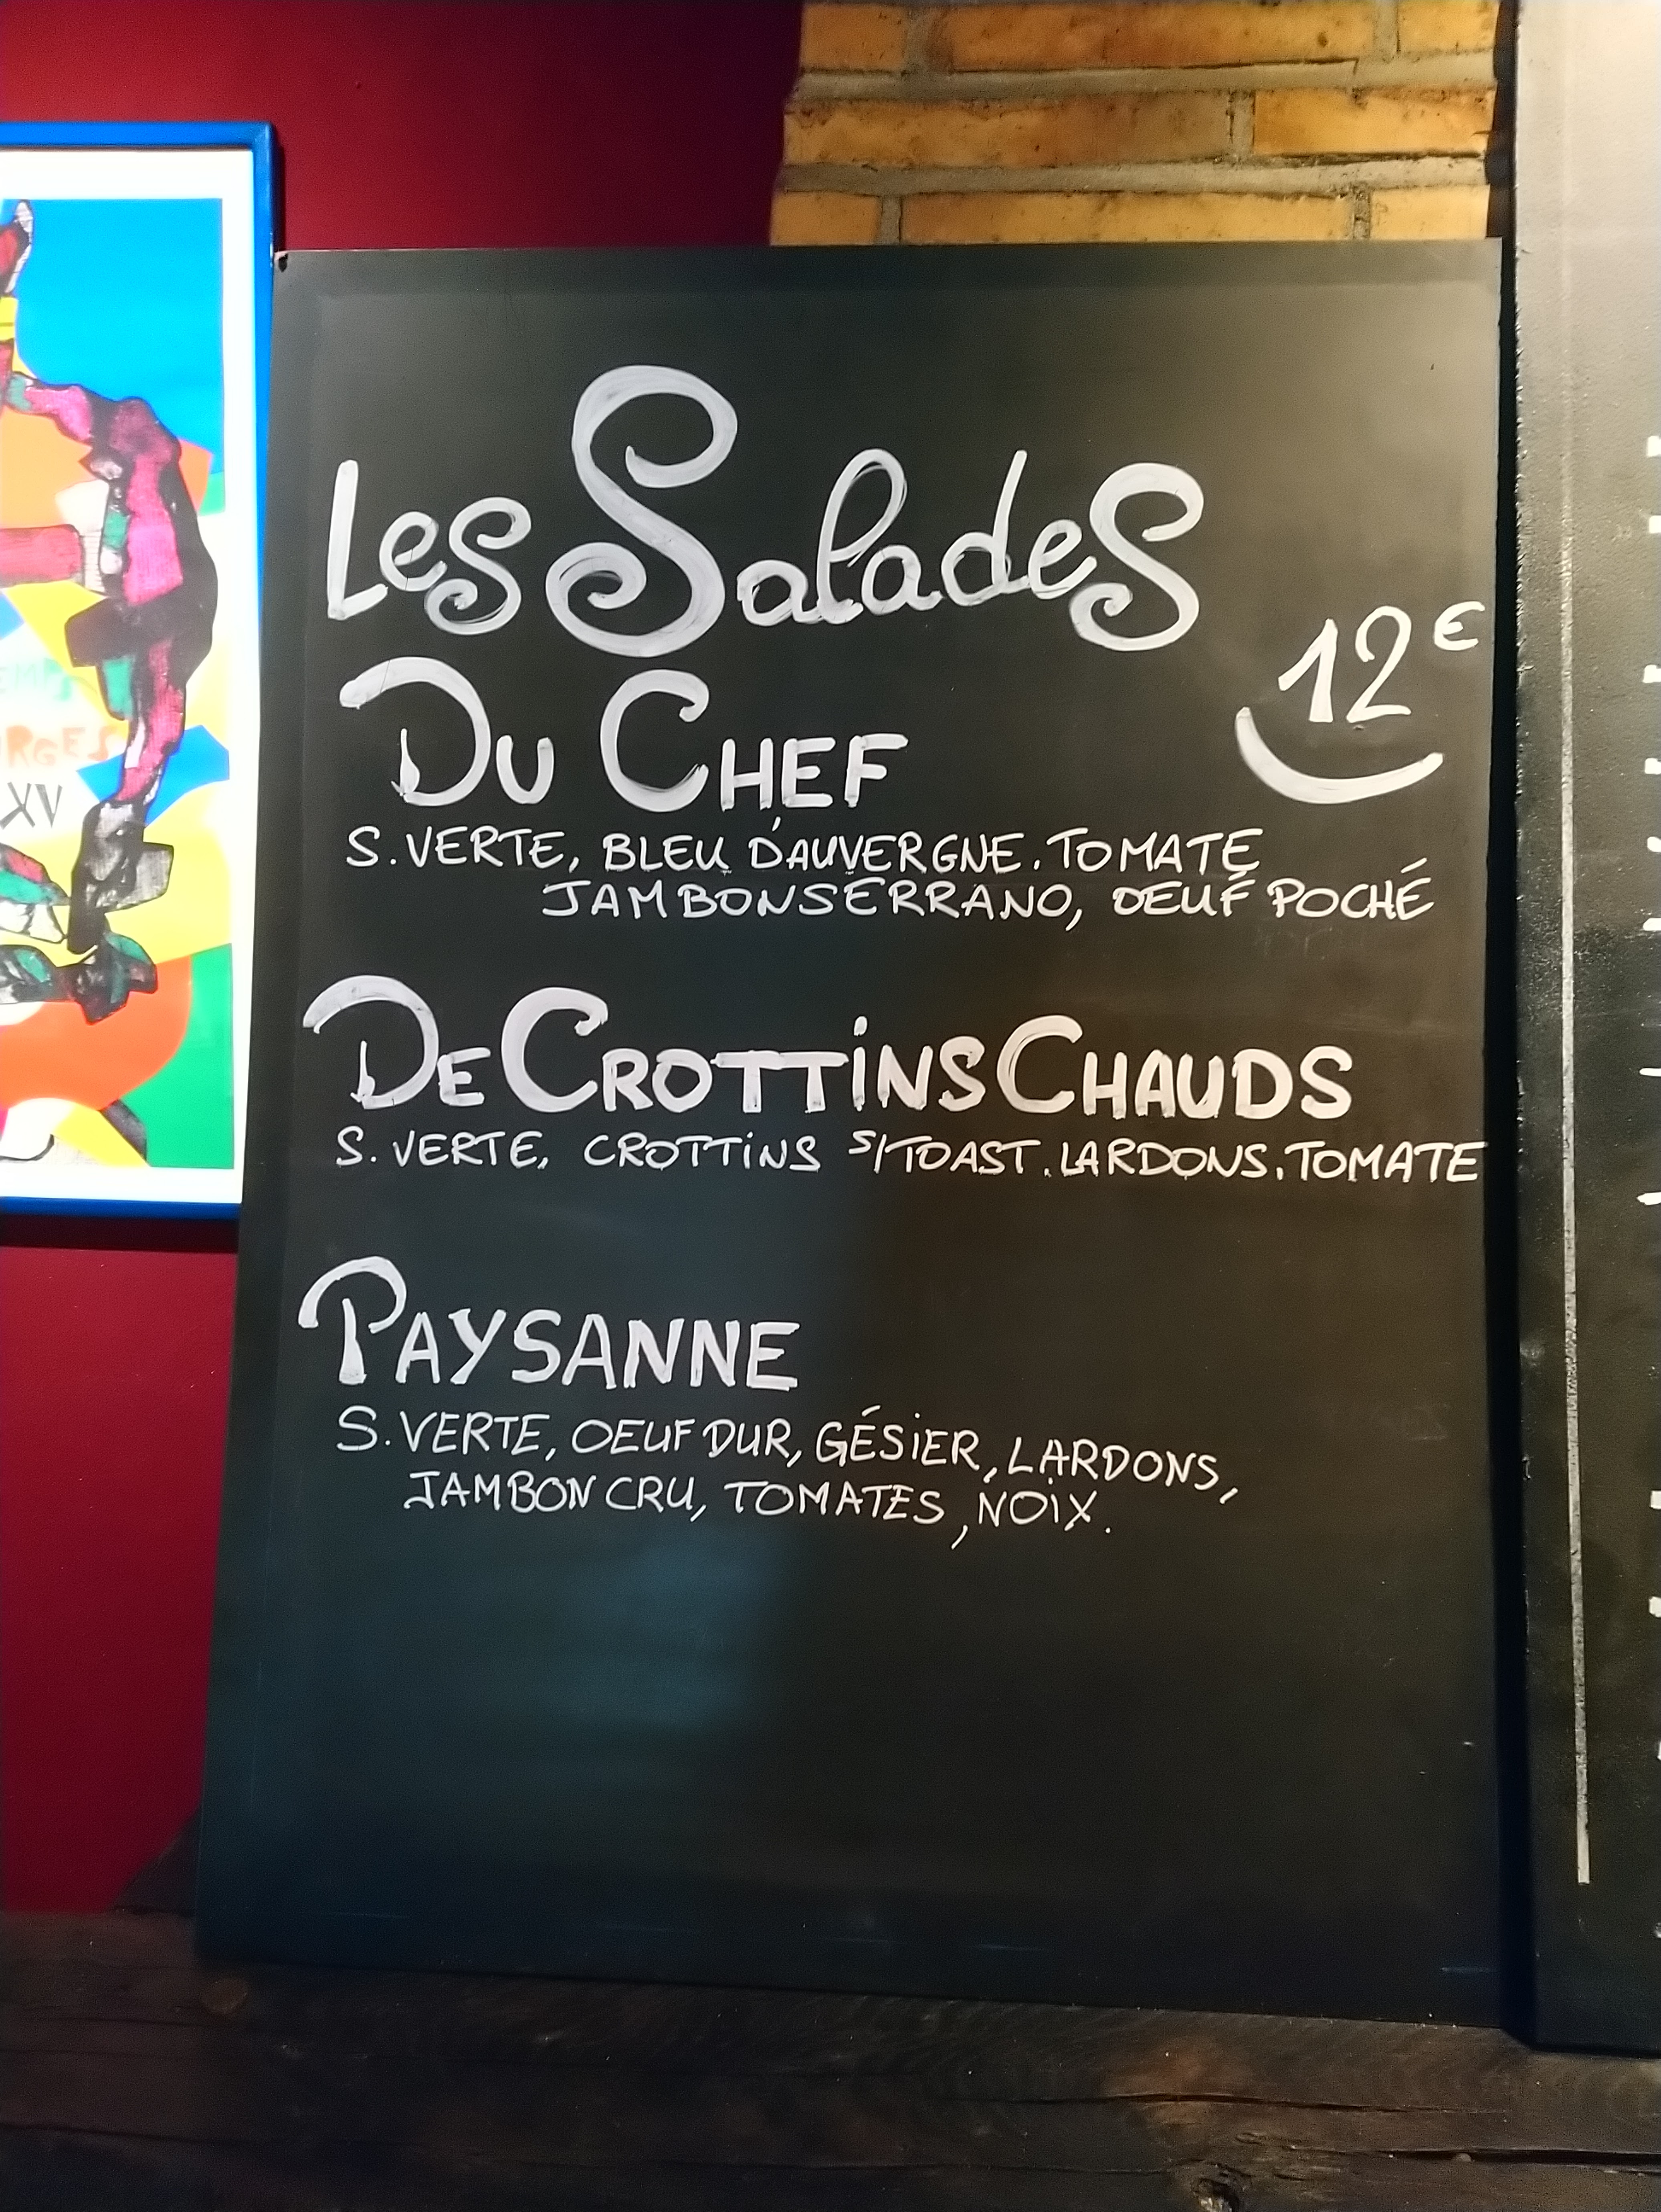 Les Salades
12€
Du CHEF
S. VERTE, BLEU D'AUVERGNE. TOMATE
JAMBON SERRANO, OEUF POCHÉ
DE CROTTINS CHAUDS
S. VERTE, CROTTINS S/TOAST. LARDONS. TOMATE
PAYSANNE
S. VERTE, OEUF DUR, GÉSIER, LARDONS,
JAMBON CRU, TOMATES, NOIX.
XV